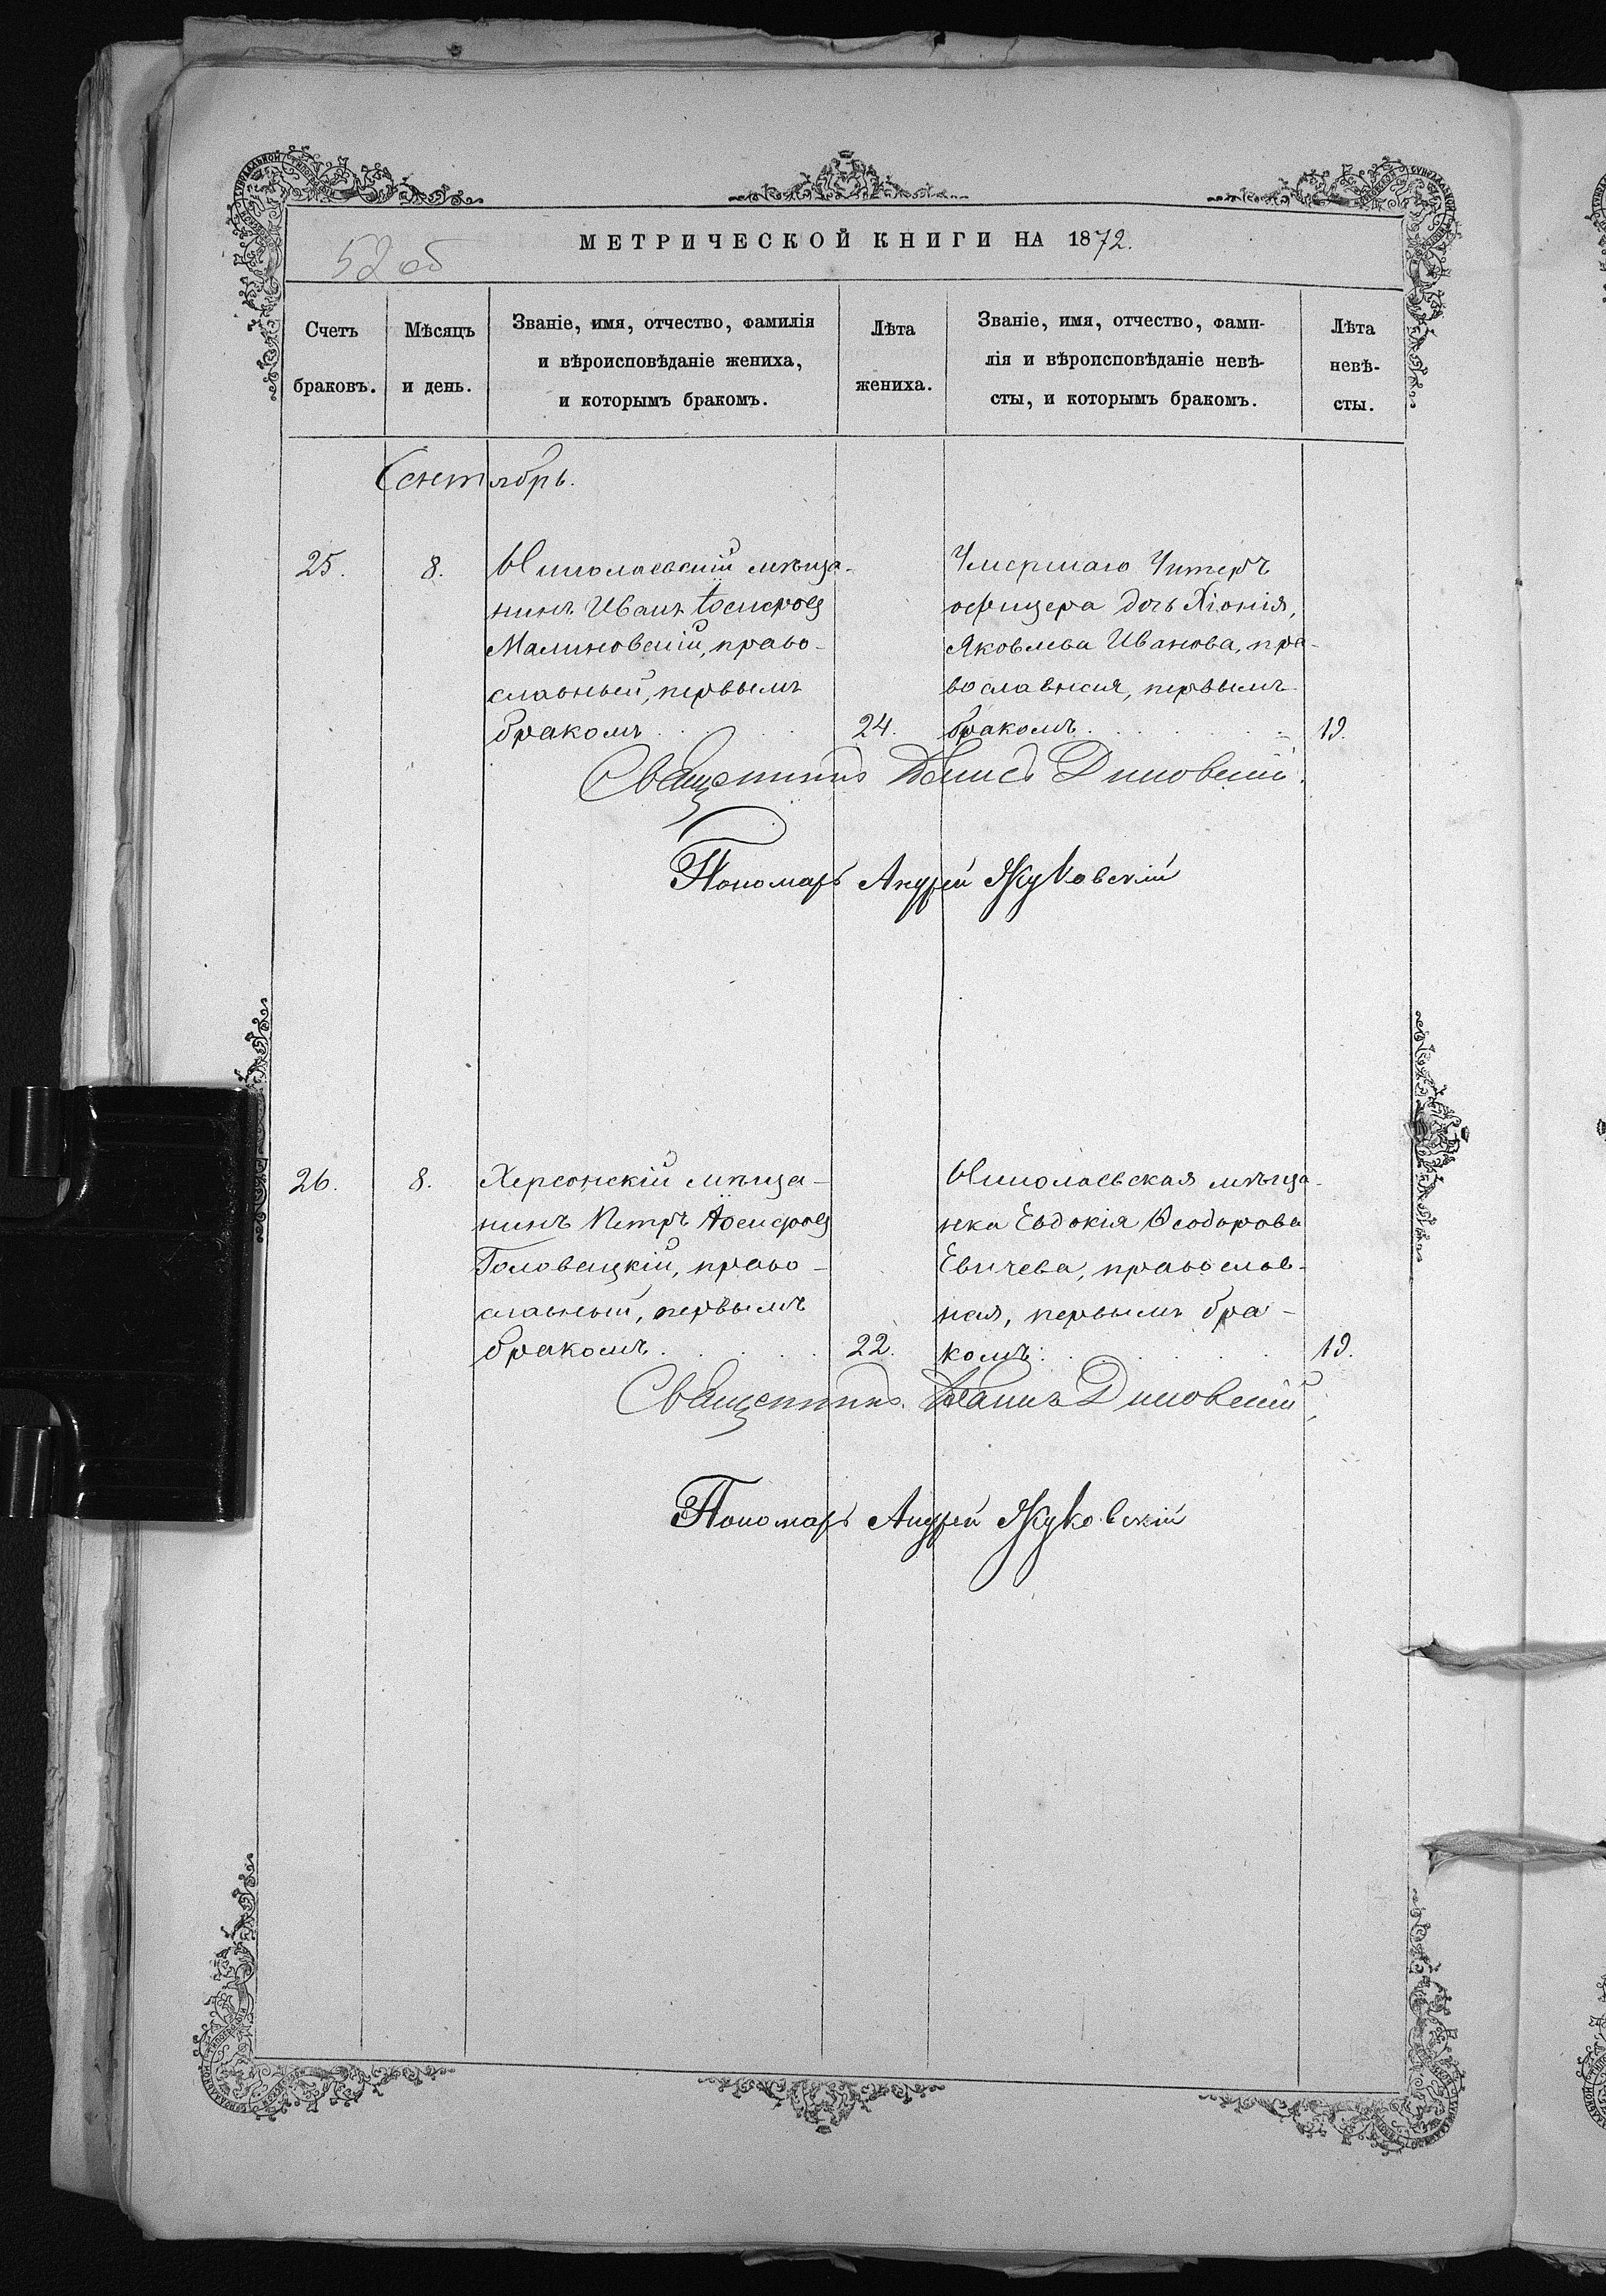 МЕТРИЧЕСКОЙ КНИГИ НА 1872.
52 об
Счетъ браковъ.
Мѣсяцъ и день.
Званіе, имя, отчество, фамилія
и вѣроисповѣданіе жениха,
и которымъ бракомъ.
Лѣта жениха.
Званіе, имя, отчество, фами-
лія и вѣроисповѣданіе невѣ-
сты, и которымъ бракомъ.
Лѣта невѣ-
сты.
Сентябрь.
25.
8.
Николаевскій мѣща-
нинъ Иванъ Іосифовъ
Малиновскій, право-
славный, первымъ
бракомъ
24.
Умершаго Унтеръ
офицера дочь Хіонія,
Яковлева Иванова, пра-
вославная, первымъ
бракомъ
19.
Священникъ
Пономарь Андрей Жуковскій
26.
8.
Херсонскій мѣща-
нинъ Петръ Іосифовъ
Головецкій, право-
славный, первымъ
бракомъ
22.
Николаевская мѣща-
нка Евдокія Ѳеодорова
Евичева, православ-
ная, первымъ бра-
комъ
19.
Священникъ
Пономарь Андрей Жуковскій